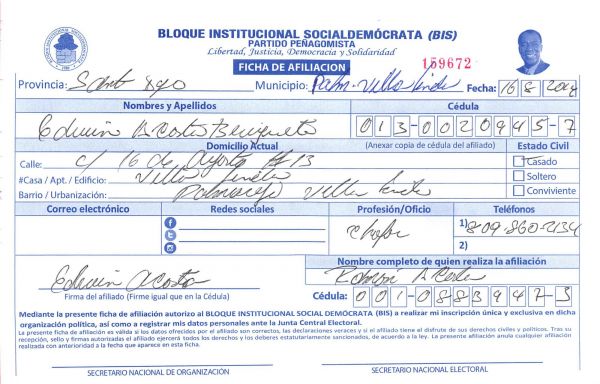 BLOQUE INSTITUCIONAL SOCIALDEMÓCRATA (BIS)
PARTIDO PEÑAGOMISTA
Libertad, Justicia, Democracia y Solidaridad
FICHA DE AFILIACION
159672
Provincia: Sant Dgo Municipio: Palm. Villa Linda Fecha: 16 8 2018
Nombres y Apellidos Cédula
Edwin Acosta 013-0020945-7
Domicilio Actual (Anexar copia de cédula del afiliado) Estado Civil
Calle: c/ 16 de Agosto # 13 Casado
#Casa / Apt. / Edificio: Villa Linda Soltero
Barrio / Urbanización: Palmarejo Villa Linda Conviviente
Correo electrónico Redes sociales Profesión/Oficio Teléfonos
Chofer 1) 809-860-2134
2)
Nombre completo de quien realiza la afiliación
Edwin Acosta
Firma del afiliado (Firme igual que en la Cédula) Cédula: 001-0883947-3
Mediante la presente ficha de afiliación autorizo al BLOQUE INSTITUCIONAL SOCIAL DEMÓCRATA (BIS) a realizar mi inscripción única y exclusiva en dicha
organización política, así como a registrar mis datos personales ante la Junta Central Electoral.
La presente ficha de afiliación es válida si los datos ofrecidos por el afiliado son correctos, las declaraciones veraces y si el afiliado tiene el disfrute de sus derechos civiles y políticos. Tras su
recepción, sello y firmas autorizadas el afiliado ejercerá todos los derechos y los deberes estatutariamente sancionados, de acuerdo a la ley. La presente afiliación anula cualquier afiliación
realizada con anterioridad a la fecha que aparece en esta ficha.
SECRETARIO NACIONAL DE ORGANIZACIÓN SECRETARIO NACIONAL ELECTORAL